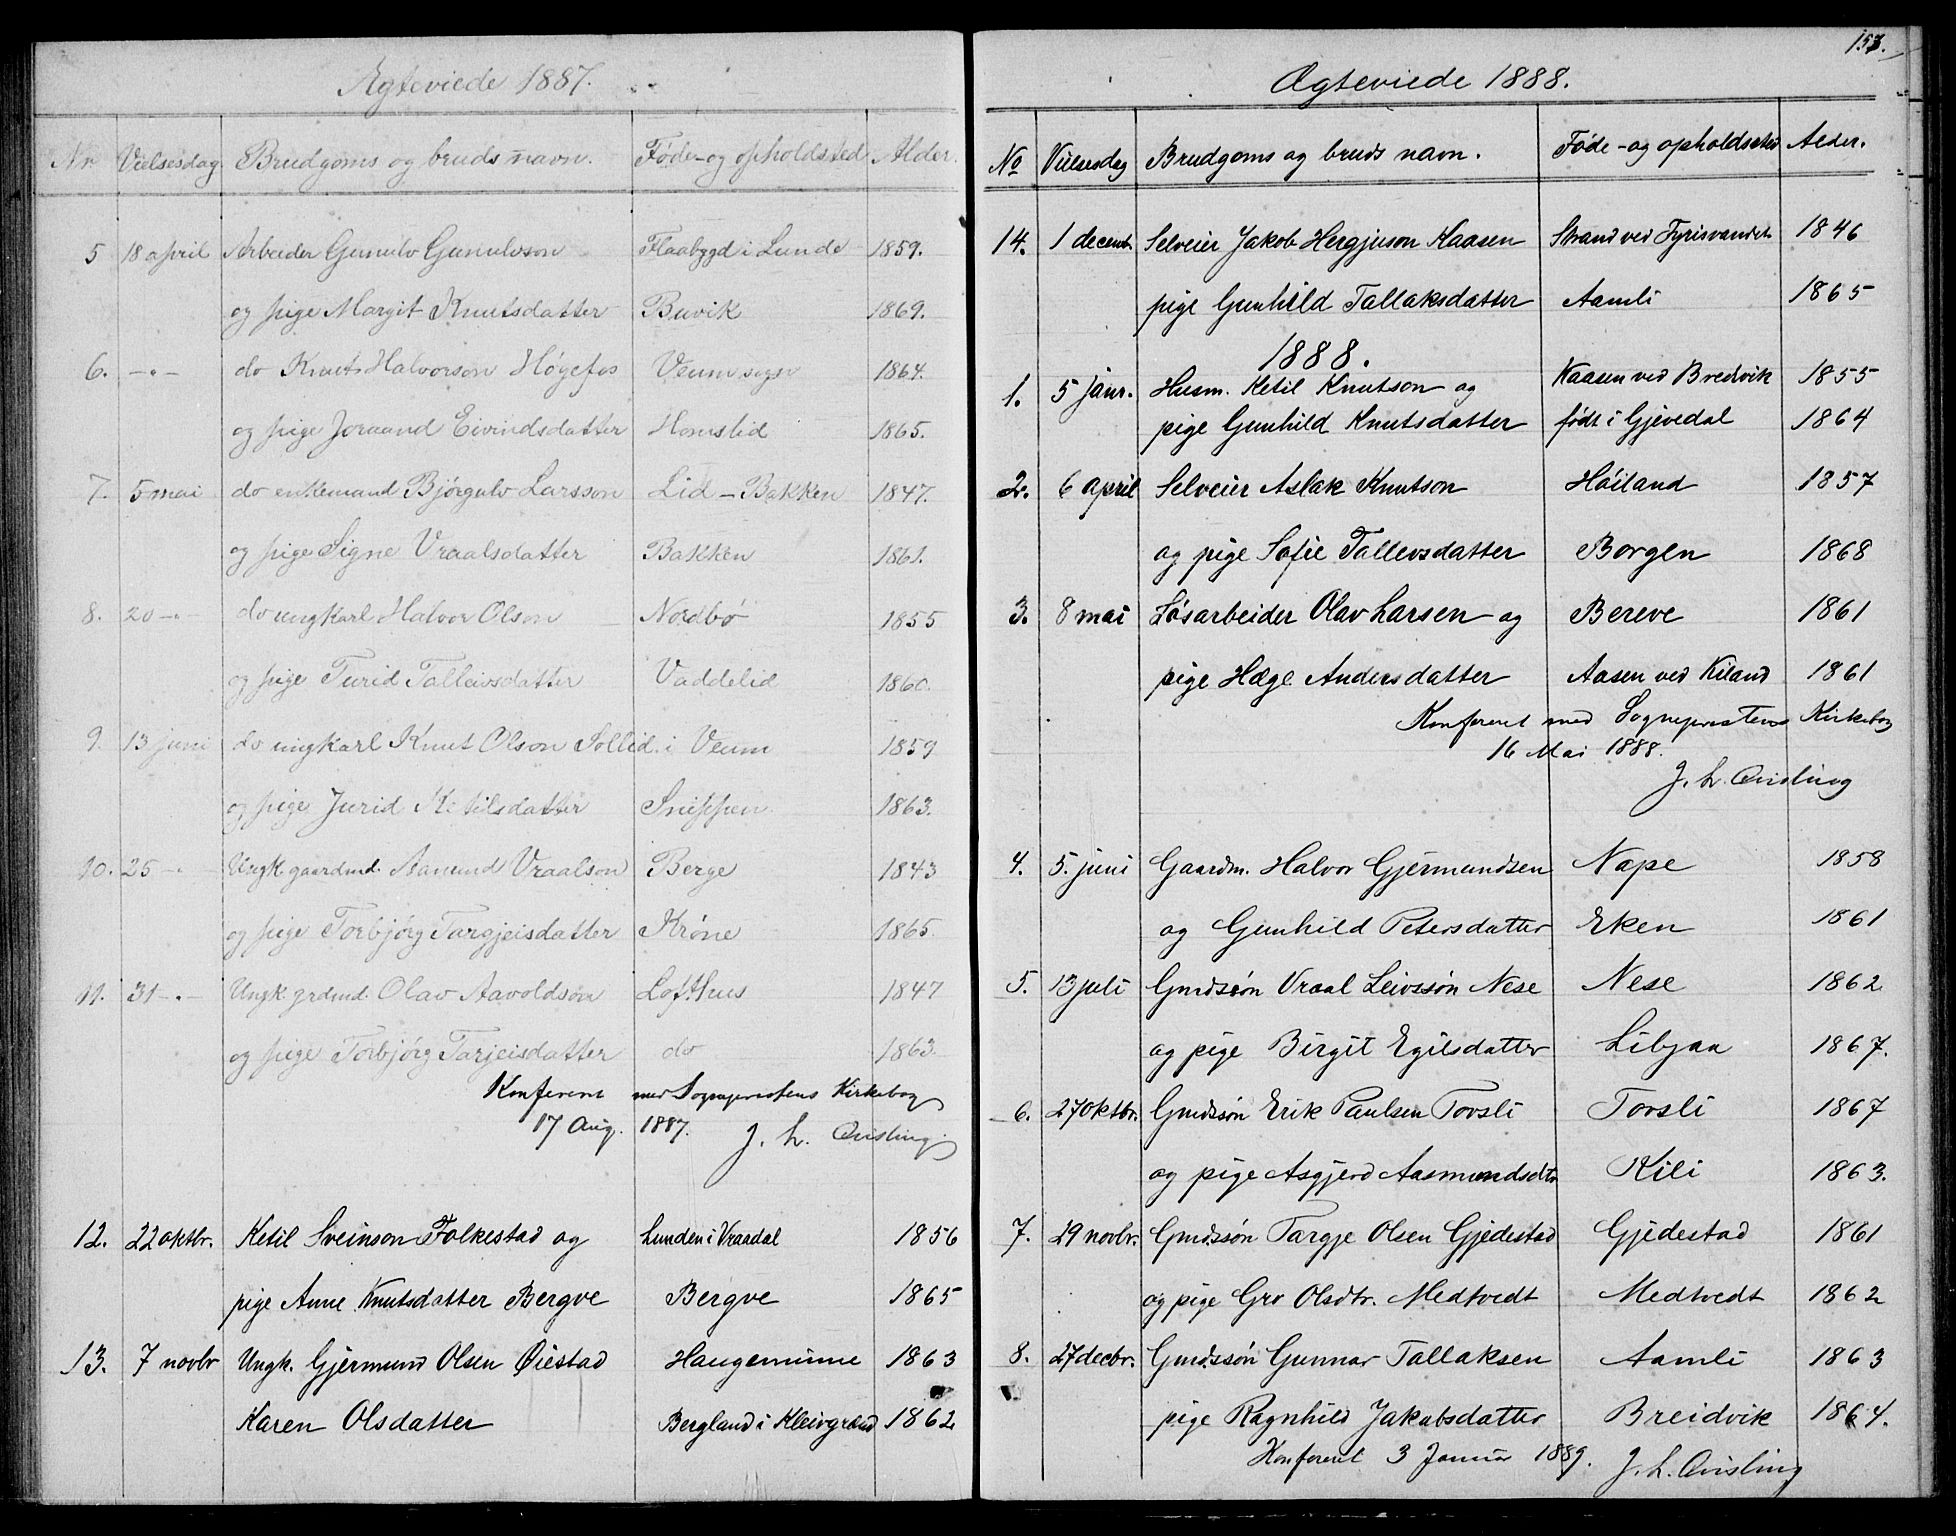 Ægteviede 1887.
Nr Vielsesdag Brudgoms og bruds navn. Føde- og opholdsted Alder.
5 18 april Arbeider Gunulv Gunulvson Flaabygd i Lunde 1859.
og pige Margit Knutsdatter Buvik 1869.
6. -"- do Knut Halvorson Høgefos Veum sogn 1864.
og pige Joraand Eivindsdatter Homslid 1865.
7. 5 mai do enkemand Bjørgulv Larsson Lid - Bakken 1847.
og pige Signe Vraalsdatter Bakken 1861.
8. 20 -"- do ungkarl Halvor Olson Nordbø 1855
og pige Turid Talleivsdatter Vaddelid 1860.
9. 13 juni do ungkarl Knut Olson Sollid i Veum 1859
og pige Jurid Ketilsdatter Snippen 1863.
10. 25 -"- Ungk. gaardmd. Aanund Vraalson Berge 1843
og pige Torbjørg Targjeisdatter Krøne 1865.
11. 31 -"- Ungk. grdmd. Olav Aavoldson Lofthus 1847
og pige Torbjørg Tarjeisdatter do 1863.
Konferert med Sogneprestens Kirkebog
17 Aug. 1887. J. L. Qvisling.
12. 22 oktbr. Ketil Sveinson Folkestad og Lunden i Vraadal 1856
pige Anne Knutsdatter Bergve Bergve 1865
13. 7 novbr Ungk. Gjermund Olsen Øiestad Haugeminne 1863
Karen Olsdatter Bergland i Kleivgrænd 1862
153.
Ægteviede 1888.
No Vielsesdag Brudgoms og bruds navn. Føde- og opholdssted Alder.
14. 1 decemb. Selveier Jakob Hergjuson Kaasen Strand ved Fyrisvandet 1846
pige Gunhild Tallaksdatter Aamli 1865
1888.
1. 5 janr. Husm. Ketil Knutson og Kaasen ved Bredvik 1855
pige Gunhild Knutsdatter født i Gjevedal 1864
2. 6 april Selveier Aslak Knutson Høiland 1857
og pige Sofie Tallevsdatter Borgen 1868
3. 8 mai Løsarbeider Olav Larsen og Bereve 1861
pige Hæge Andersdatter Aasen ved Kiland 1861
Konferert med Sogneprestens Kirkebog
16 Mai 1888.
J. L. Qvisling
4. 5. juni Gaardm. Halvor Gjermundsen Nape 1858
og Gunhild Petersdatter Eken 1861
5. 13 juli Gmdssøn Vraal Leivssøn Nese Nese 1862
og pige Birgit Egilsdatter Libjaa 1867.
6. 27 oktbr. Gmdssøn Erik Paulsen Tovsli Tovsli 1867
og pige Asgjerd Aasmundsdtr Kili 1863.
7. 29 novbr. Gmdssøn Targje Olsen Gjedestad Gjedestad 1861
og pige Gro Olsdtr. Medtvedt Medtvedt 1862
8. 27 decbr. Gmdssøn Gunnar Tallaksen Aamli 1863
pige Ragnhild Jakobsdatter Breidvik 1864.
Konferert 3 Januar 1889. J. L. Qvisling